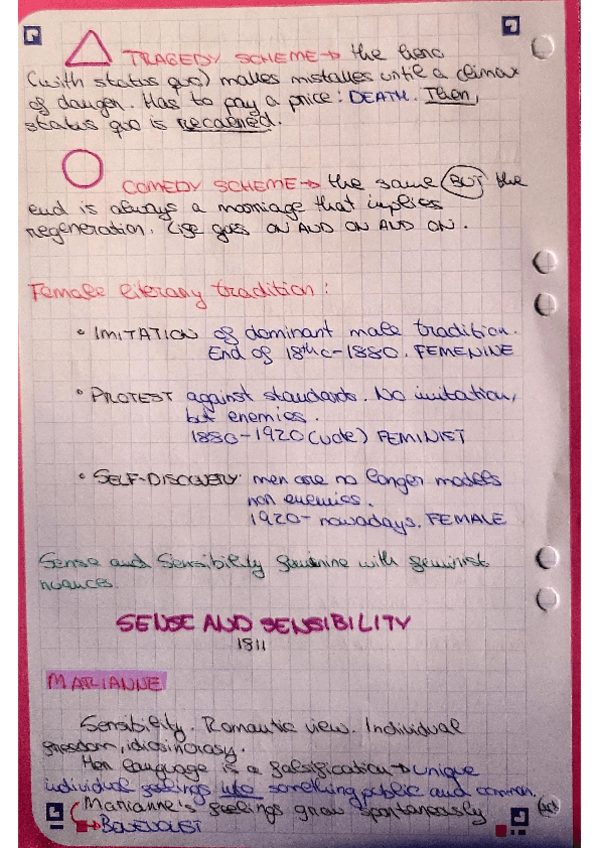 TRAGEDY SCHEME → the hero
(with status quo) makes mistakes until a climax
of danger. Has to pay a price: DEATH. Then,
status quo is regained.
COMEDY SCHEME → the same BUT the
end is always a marriage that implies
regeneration. Life goes ON AND ON AND ON.
Female literary tradition:
• IMITATION of dominant male tradition.
End of 18th c - 1880. FEMENINE
• PROTEST against standards. No imitation,
but enemies.
1880-1920 (vote) FEMINIST
• SELF-DISCOVERY: men are no longer models
non enemies.
1920- nowadays. FEMALE
Sense and Sensibility feminine with feminist
nuances.
SENSE AND SENSIBILITY
1811
MARIANNE
Sensibility. Romantic view. Individual
freedom, idiosincrasy.
Her language is a falsification → unique
individual feelings into something public and common.
Marianne's feelings grow spontaneously
→ BENEVOLIST